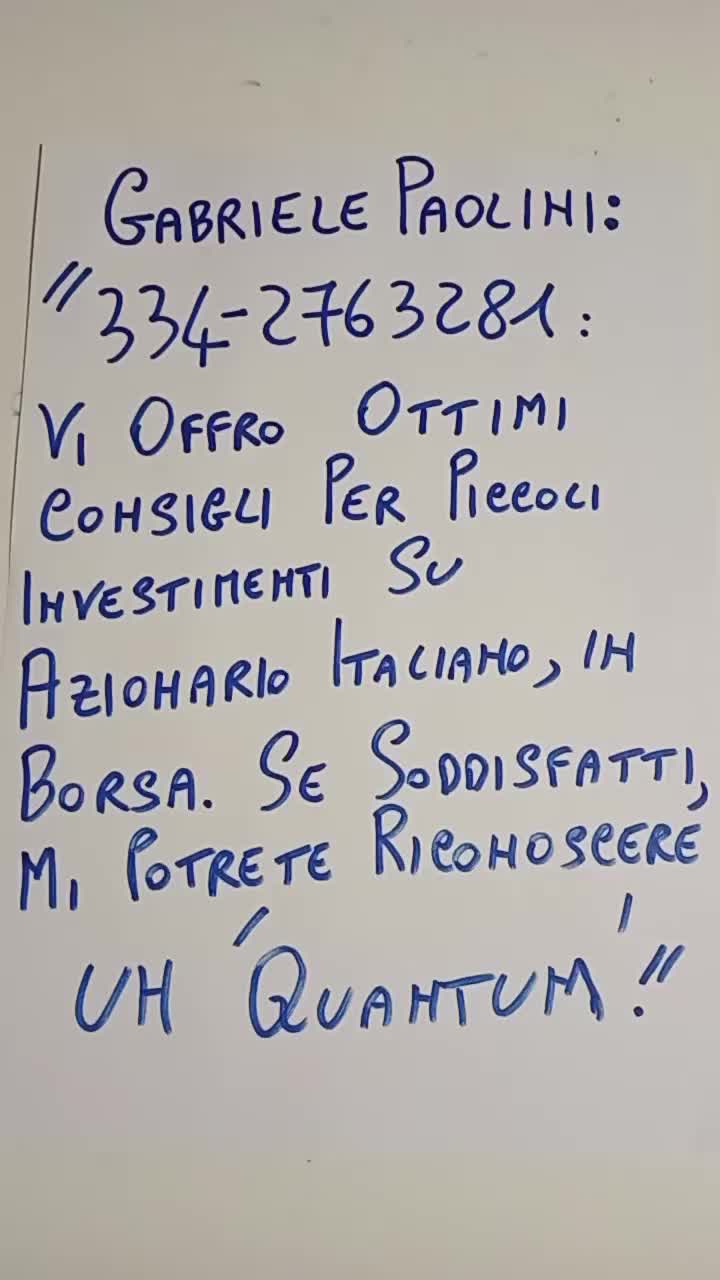 GABRIELE PAOLINI:
"334-2763281:
VI OFFRO OTTIMI
CONSIGLI PER PICCOLI
INVESTIMENTI SU
AZIONARIO ITALIANO, IN
BORSA. SE SODDISFATTI,
MI POTRETE RICONOSCERE
UN 'QUANTUM'."